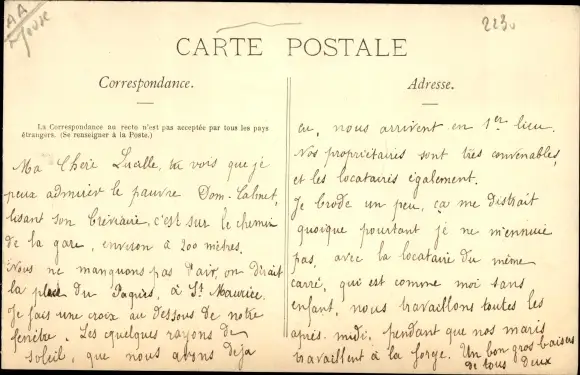 AA
Meuse
223
CARTE POSTALE
Correspondance.
La Correspondance au recto n'est pas acceptée par tous les pays
étrangers. (Se renseigner à la Poste.)
Ma Chère Lucille, tu vois que je
peux admirer le pauvre Dom-Calmet,
lisant son bréviaire, c'est sur le chemin
de la gare, environ à 200 mètres.
Nous ne manquons pas d'air, on dirait
la place du Paquis, à St Maurice.
Je fais une croix au dessous de notre
fenêtre. Les quelques rayons de
soleil, que nous avons déjà
Adresse.
eu, nous arrivent en 1er lieu.
Nos propriétaires sont très convenables,
et les locataires également.
Je brode un peu, ça me distrait
quoique pourtant je ne m'ennuie
pas, avec la locataire du même
carré, qui est comme moi sans
enfant, nous travaillons toutes les
après-midi, pendant que nos maris
travaillent à la forge. Un bon gros baiser
de tous deux